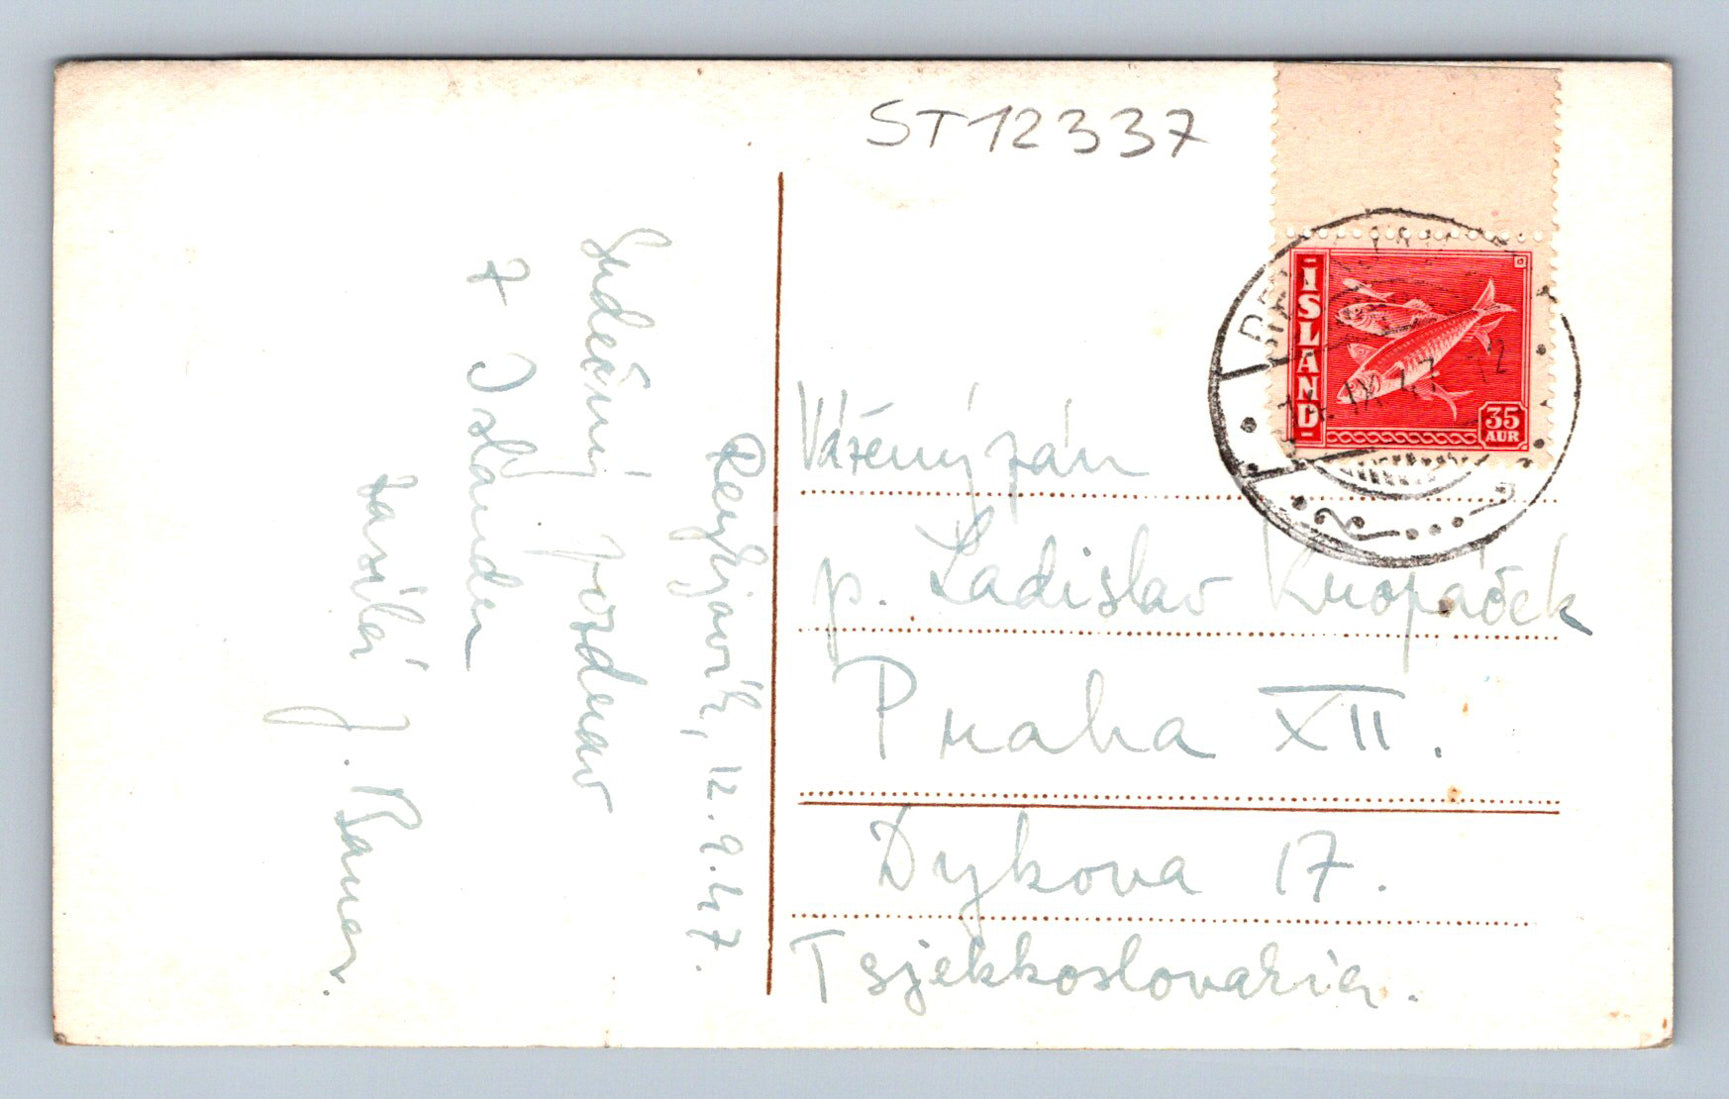 ST12337
ÍSLAND
35
AUR
IX 47 12
Reykjavík, 12.9.47.
Srdečný pozdrav
z Islandu
zasílá J. Bauer.
Vážený pán
p. Ladislav Knopáček
Praha XII.
Dykova 17.
Tsjekkoslovakia.